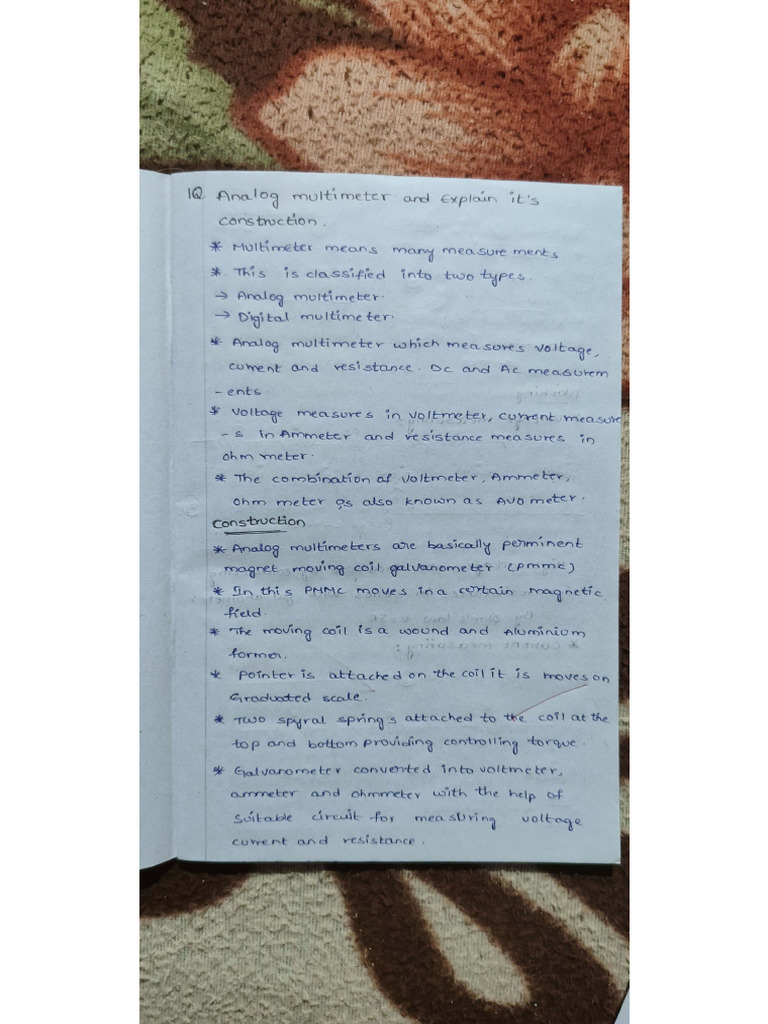 1Q Analog multimeter and Explain it's
construction.
* Multimeter means many measure ments
*. This is classified into two types.
→ Analog multimeter.
→ Digital multimeter.
* Analog multimeter which measures voltage,
current and resistance. Dc and Ac measurem
-ents.
* Voltage measures in voltmeter, current measure
-s in Ammeter and resistance measures in
ohm meter.
* The combination of voltmeter, Ammeter,
ohm meter is also known as AVO meter.
Construction
* Analog multimeters are basically perminent
magnet moving coil galvanometer (PMMC)
* In this PMMC moves in a certain magnetic
field.
* The moving coil is a wound and Aluminium
former.
* pointer is attached on the coil it is moves on
Graduated scale.
* Two spyral spring s attached to the coil at the
top and bottom providing controlling torque.
* Galvanometer converted into voltmeter,
ammeter and ohmmeter with the help of
suitable circuit for measuring voltage
current and resistance.